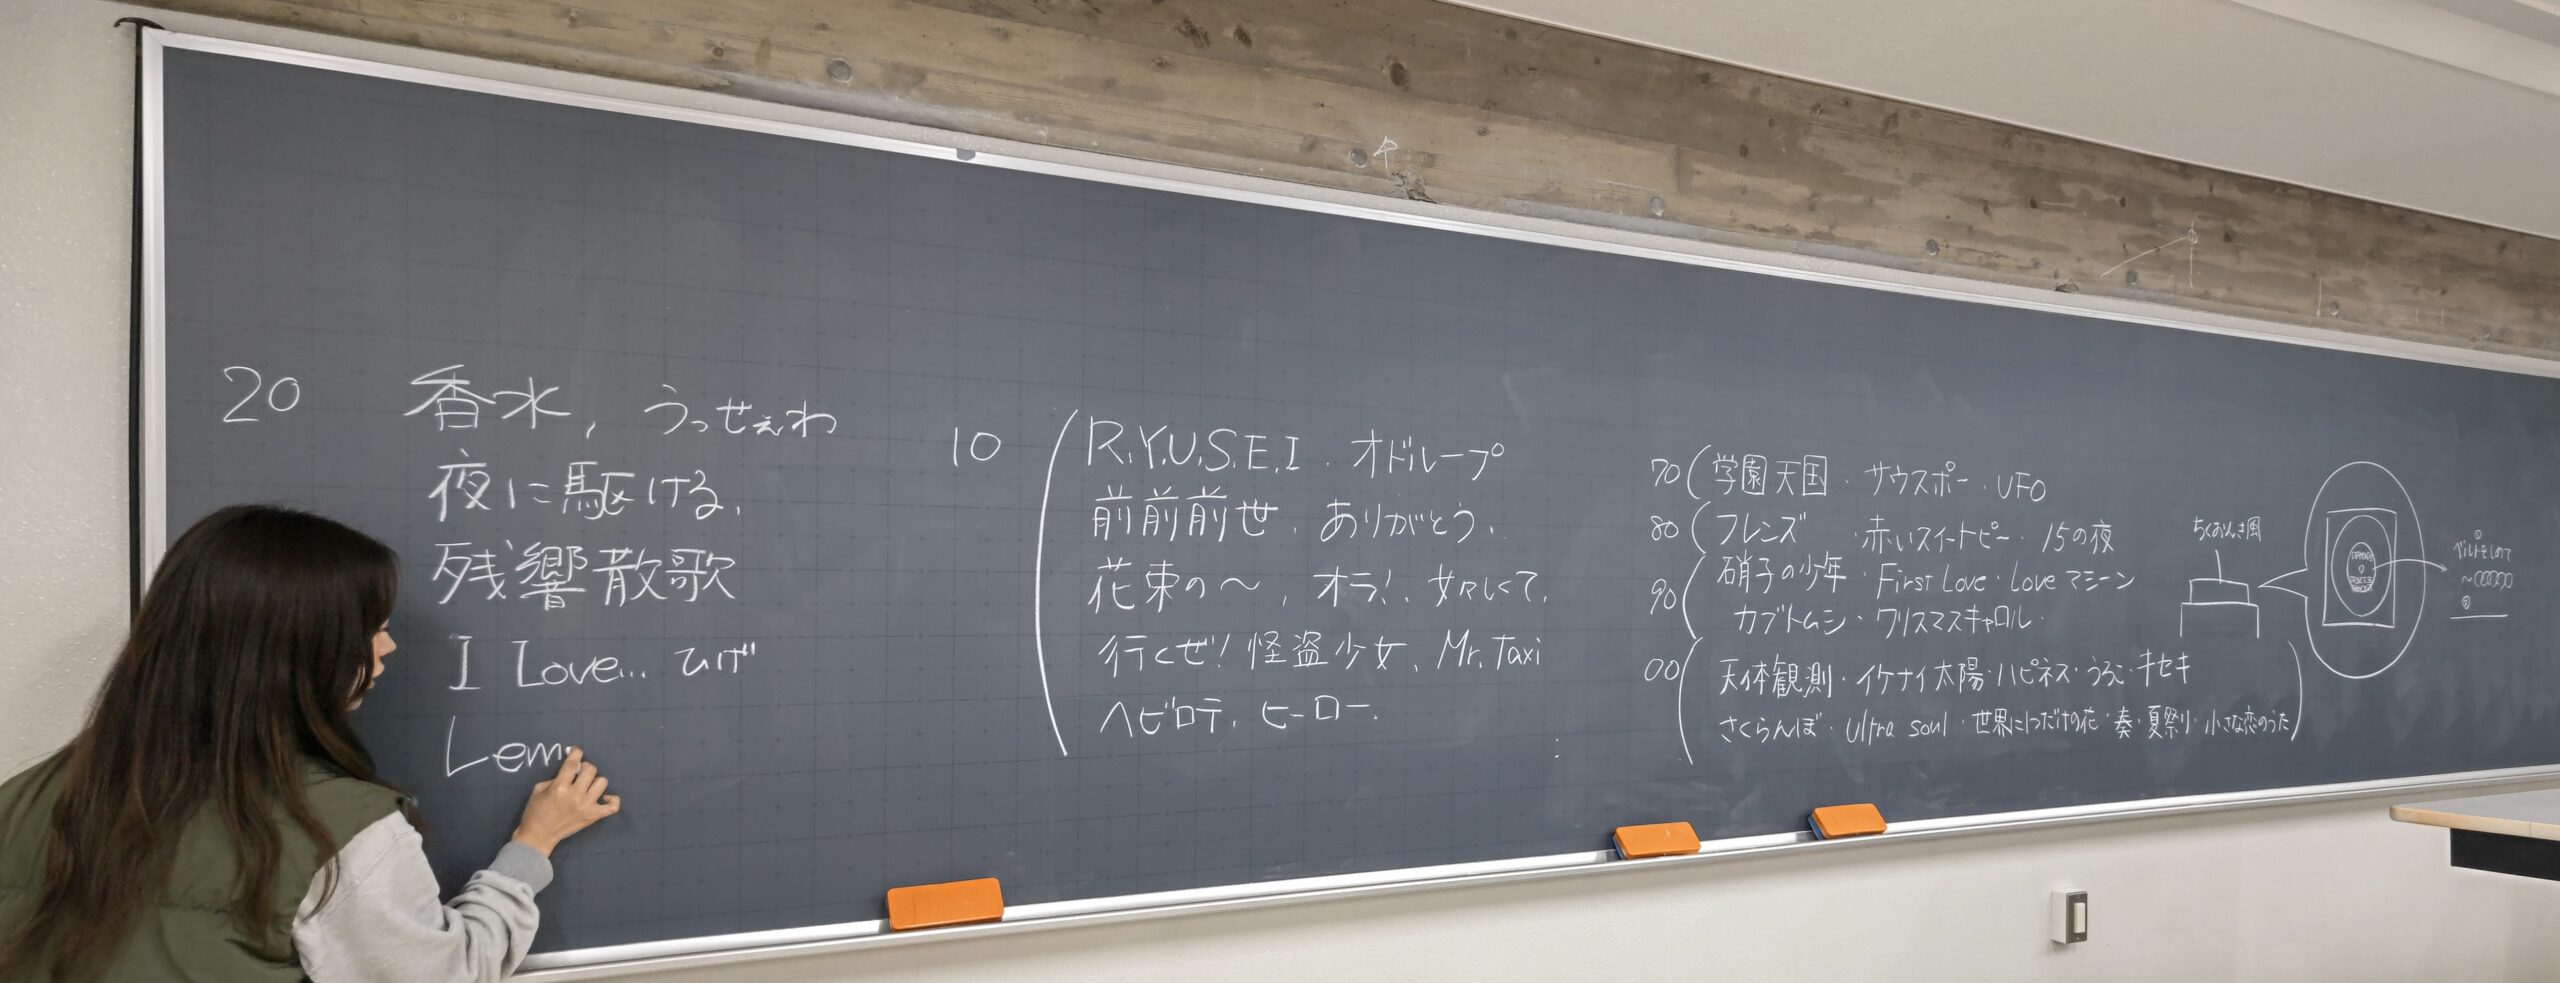 20 香水, うっせぇわ
夜に駆ける,
残響散歌
I Love... ひげ
Lem
10 R.Y.U.S.E.I. オドループ
前前前世, ありがとう,
花束の〜, オラ!, 女々しくて,
行くぜ!怪盗少女, Mr. Taxi
ヘビロテ, ヒーロー.
70 学園天国・サウスポー・UFO
80 フレンズ ・赤いスイートピー・15の夜
90 硝子の少年・First Love・Loveマシーン
カブトムシ・クリスマスキャロル・
00 天体観測・イケナイ太陽・ハピネス・うろこ・キセキ
さくらんぼ・Ultra soul・世界に1つだけの花・奏・夏祭り・小さな恋のうた
ちくおんき風
ベルトをしめて